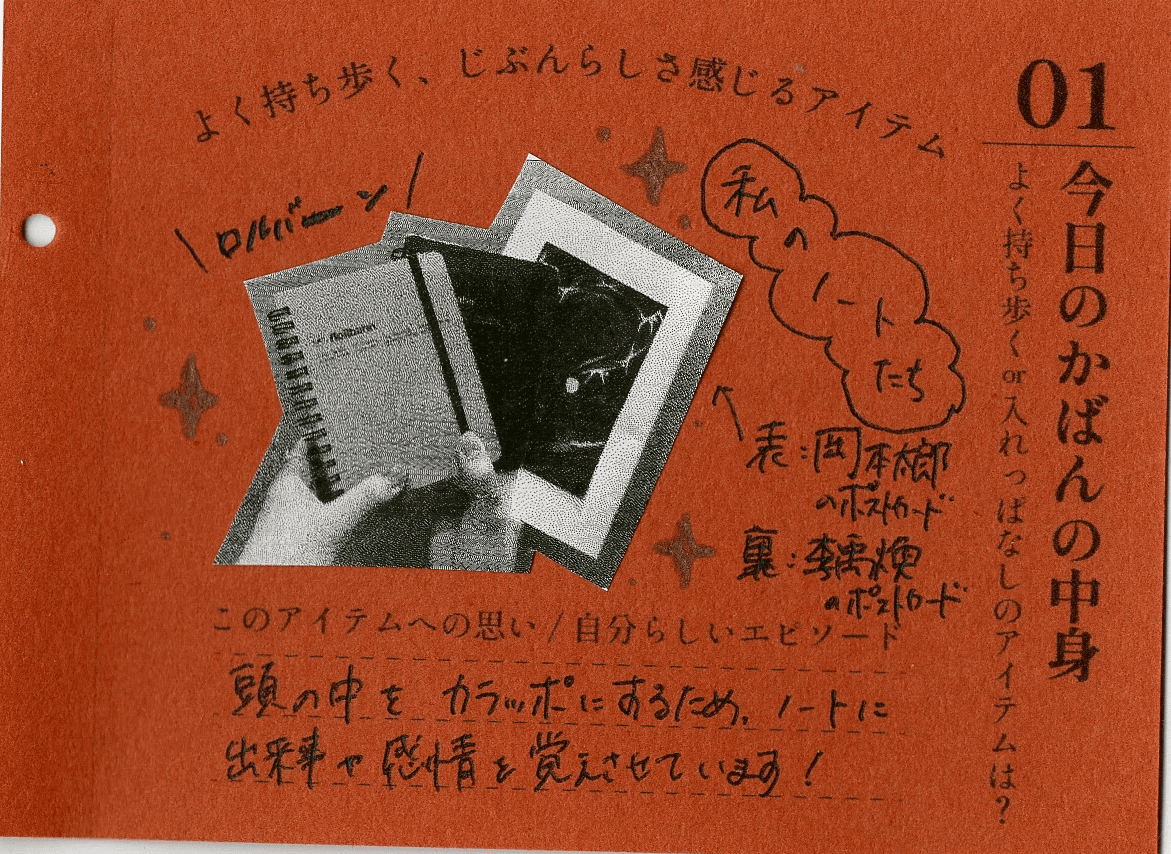 01
今日のかばんの中身
よく持ち歩くor入れっぱなしのアイテムは?
よく持ち歩く、じぶんらしさ感じるアイテム
\ロルバーン/
私
の
ノート
たち
Rollbahn
表:岡本太郎
のポストカード
裏:李禹煥
のポストカード
このアイテムへの思い/自分らしいエピソード
頭の中をカラッポにするため、ノートに
出来事や感情を覚えさせています!